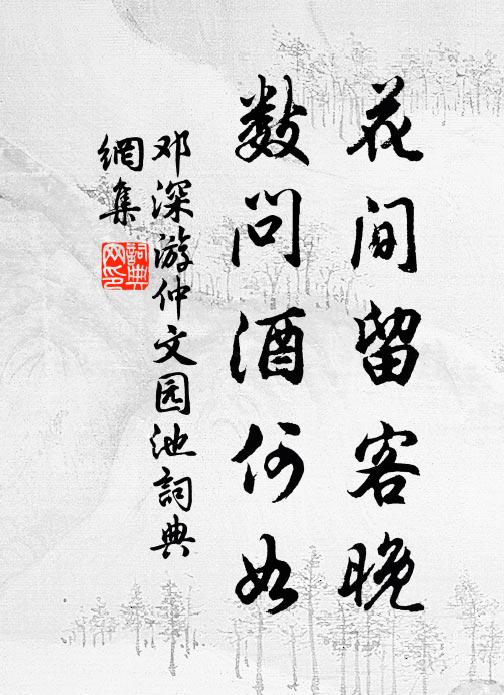 花间留客晚
数问酒何如
邓深游仲文园池詞典
網集
詞典
网印